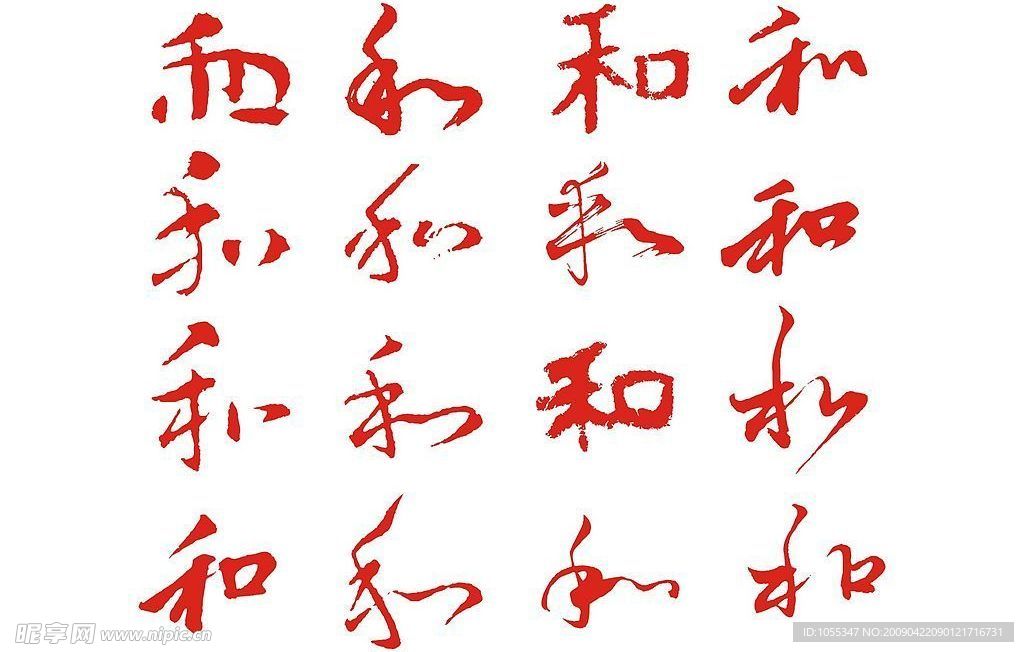 和 和 和 和
和 和 和 和
和 和 和 和
和 和 和 和
昵享网 www.nipic.cn
ID:1055347 NO:20090422090121716731